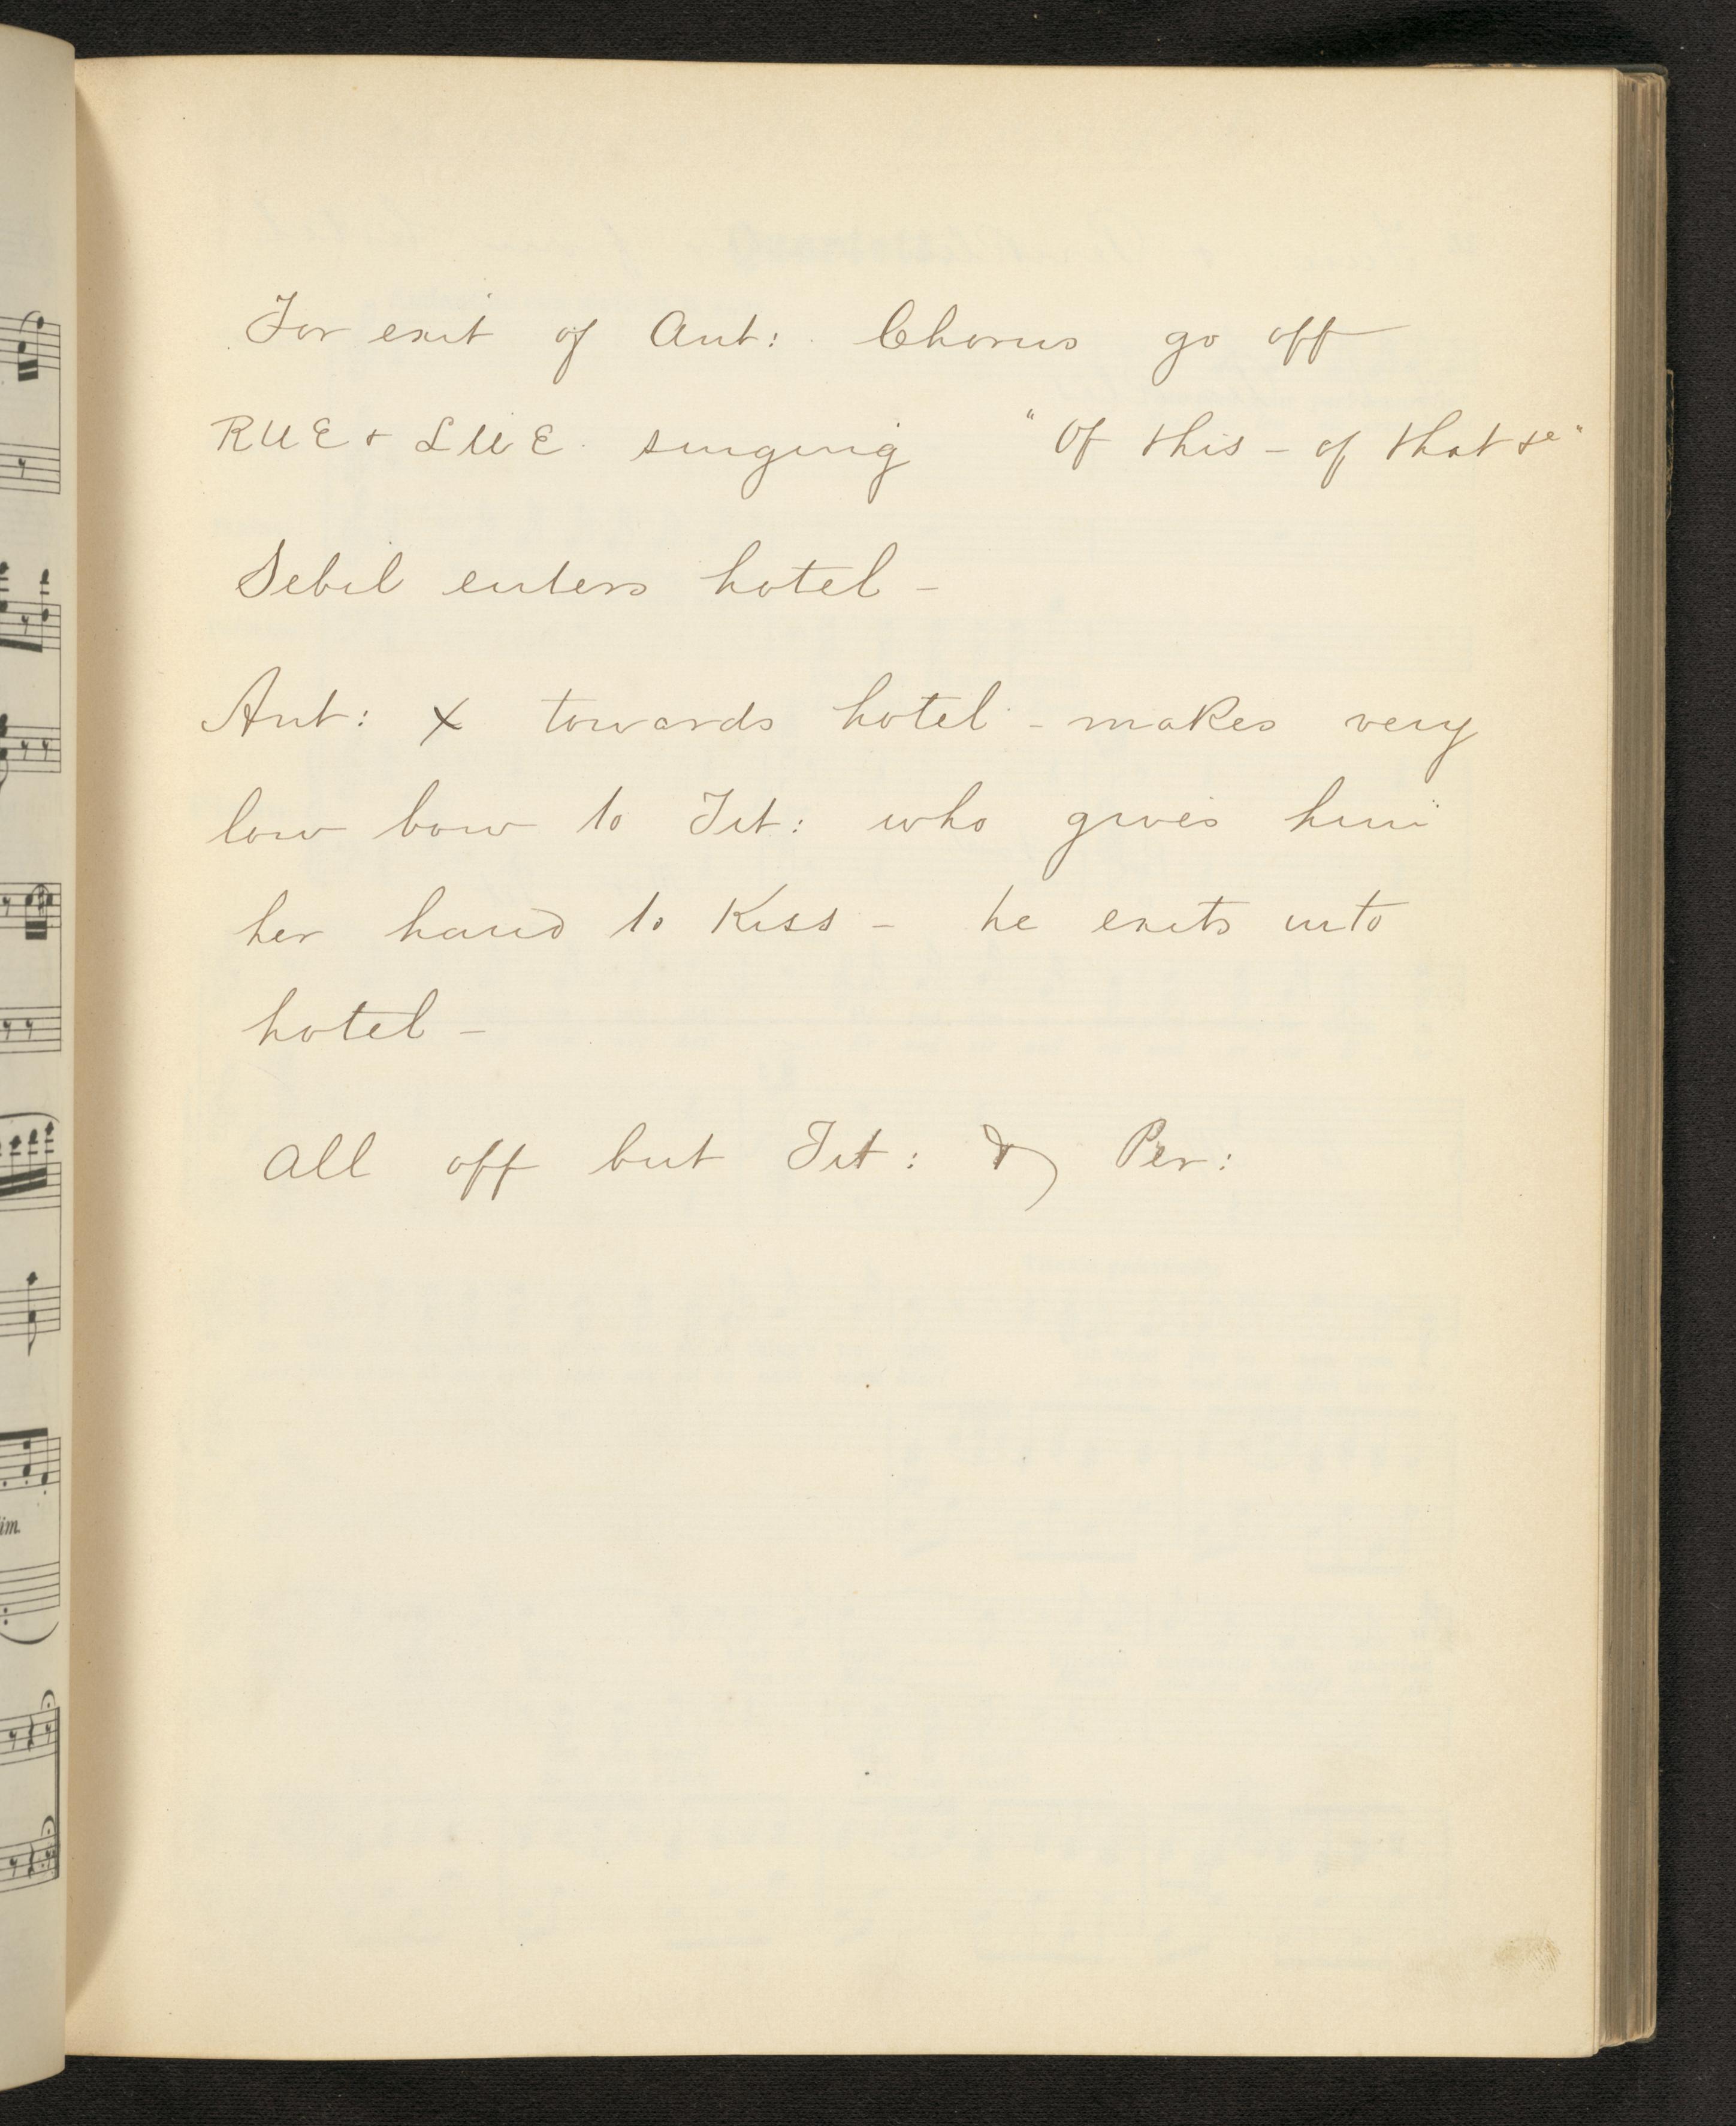 For exit of Ant: Chorus go off
RUE & LUE. singing "Of this - of that &c"
Sebil enters hotel -
Ant: X towards hotel - makes very
low bow to Tit: who gives him
her hand to Kiss - he exits into
hotel -
All off but Tit: & Per:
im.